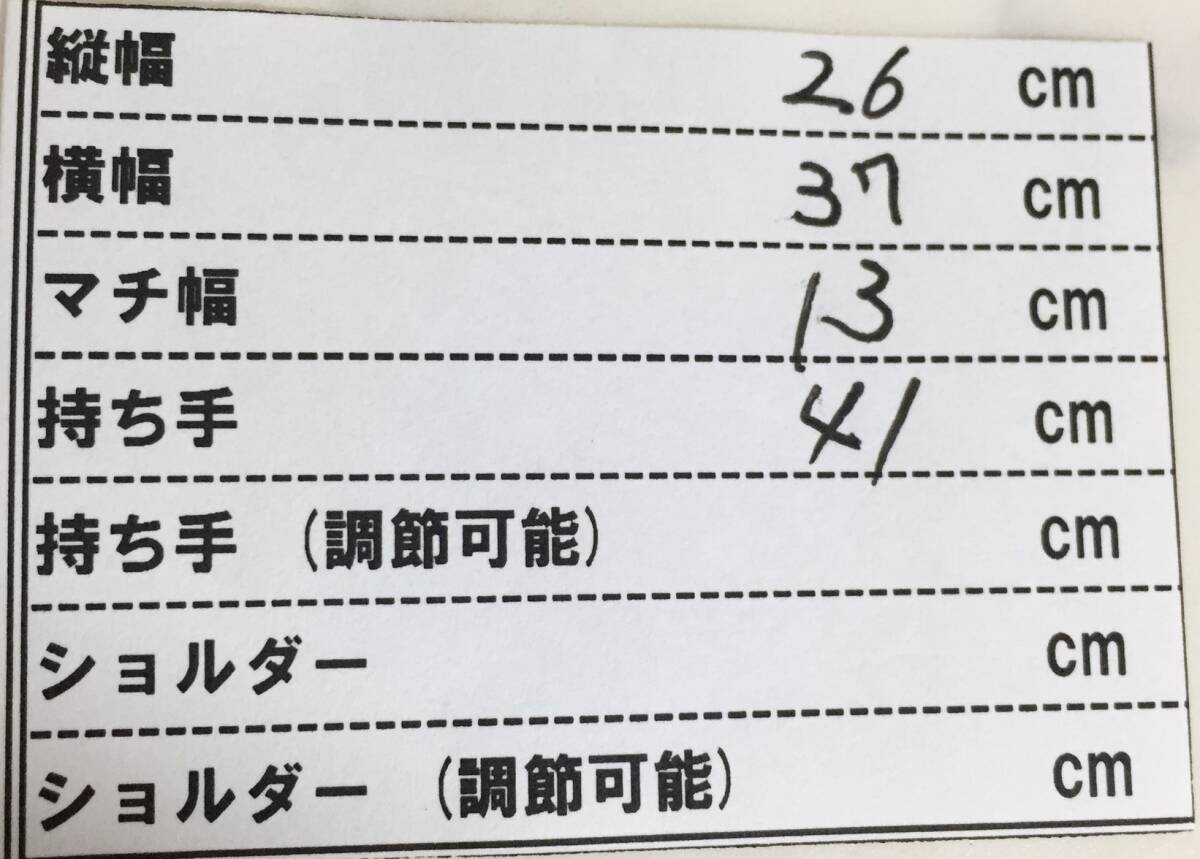 縦幅 26 cm
横幅 37 cm
マチ幅 13 cm
持ち手 41 cm
持ち手 (調節可能) cm
ショルダー cm
ショルダー (調節可能) cm